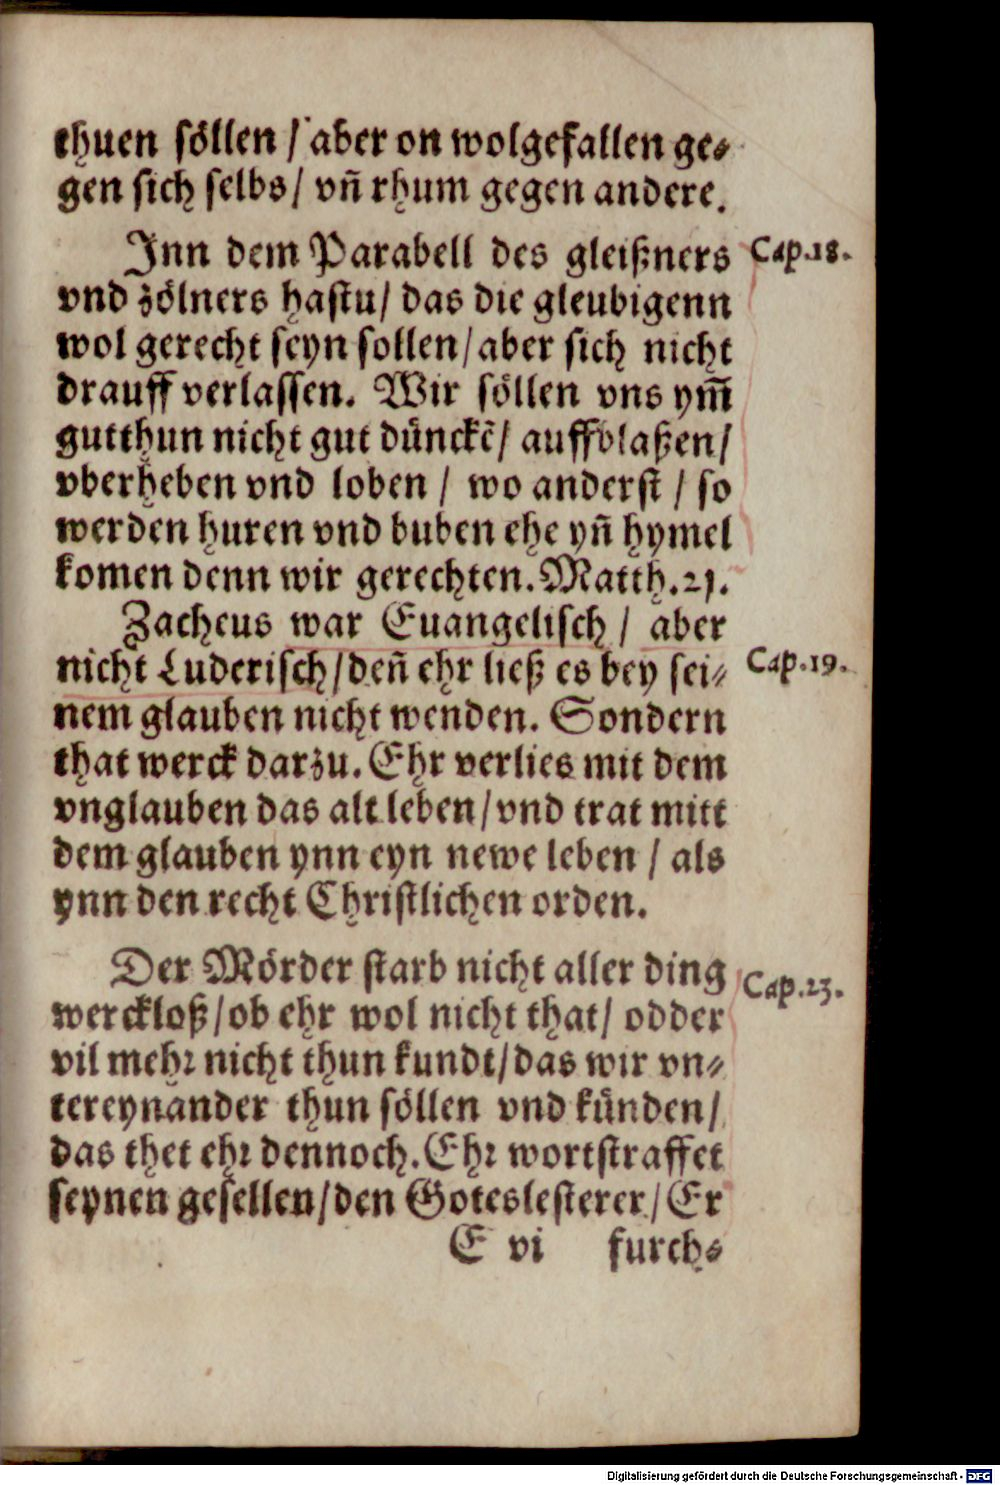 thuen söllen / aber on wolgefallen ge⸗
gen sich selbs / vñ rhum gegen andere.
Inn dem Parabell des gleißners
Cap.18.
vnd zölners hastu / das die gleubigenn
wol gerecht seyn sollen / aber sich nicht
drauff verlassen. Wir söllen vns ym̃
gutthun nicht gut dünckẽ / auffblaßen /
vberheben vnd loben / wo anderst / so
werden huren vnd buben ehe yñ hymel
komen denn wir gerechten. Matth.21.
Zacheus war Euangelisch / aber
nicht Luderisch / deñ ehr ließ es bey sei⸗
Cap.19.
nem glauben nicht wenden. Sondern
that werck darzu. Ehr verlies mit dem
vnglauben das alt leben / vnd trat mitt
dem glauben ynn eyn newe leben / als
ynn den recht Christlichen orden.
Der Mörder starb nicht aller ding
Cap.23.
werckloß / ob ehr wol nicht that / odder
vil mehr nicht thun kundt / das wir vn⸗
tereynander thun söllen vnd künden /
das thet ehr dennoch. Ehr wortstraffet
seynen gesellen / den Goteslesterer / Er
E vi furch⸗
Digitalisierung gefördert durch die Deutsche Forschungsgemeinschaft - DFG